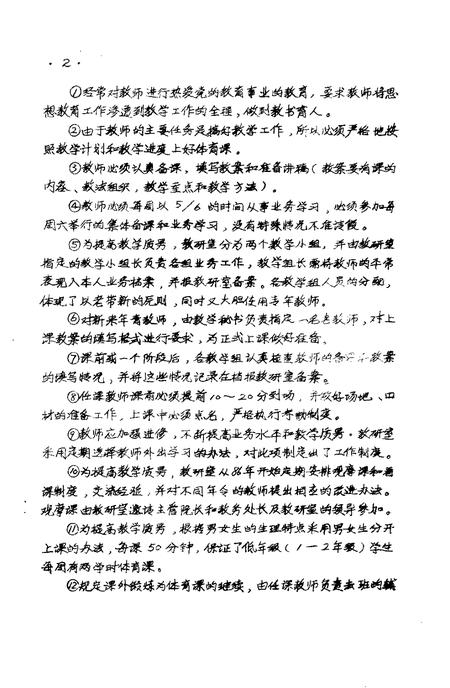 · 2 ·
①经常对教师进行热爱党的教育事业的教育，要求教师将思
想教育工作渗透到教学工作的全程，做到教书育人。
②由于教师的主要任务是搞好教学工作，所以必须严格地按
照教学计划和教学进度上好体育课。
③教师必须认真备课，填写教案和准备讲稿（教案要有课的
内容、教法组织，教学重点和教学方法）。
④教师必须每周以5/6的时间从事业务学习，必须参加每
周六举行的集体备课和业务学习，没有特殊情况不准请假。
⑤为提高教学质男，教研室分为两个教学小组，并由教研室
指定的教学小组长负责各组业务工作，教学组长需将教师的平常
表现入本人业务档案，并报教研室备案。各教学组人员的分配，
体现了以老带新的原则，同时又大胆使用青年教师。
⑥对新来年青教师，由教学秘书负责指定一名老教师，对上
课教案的填写格式进行要求，为正式上课做好准备。
⑦课前或一个阶段后，各教学组认真检查教师的备课和教案
的填写情况，并将这些情况记录在档报教研室备案。
⑧任课教师课前必须提前10～20分到场，并做好场地、四
材的准备工作，上课中必须点名，严格执行考勤制度。
⑨教师应加强进修，不断提高业务水平和教学质男，教研室
采用定期选择教师外出学习的办法，对此项制定出了工作制度。
⑩为提高教学质男，教研室从86年开始定期安排观摩课和看
课制度，交流经验，并对不同年令的教师提出相应的改进办法。
观摩课由教研室邀请主管院长和教务处长及教研室的领导参加。
⑪为提高教学质男，根据男女生的生理特点采用男女生分开
上课的办法，每课50分钟，保证了低年级（1—2年级）学生
每周有两学时体育课。
⑫规定课外锻炼为体育课的继续，由任课教师负责去班的辅